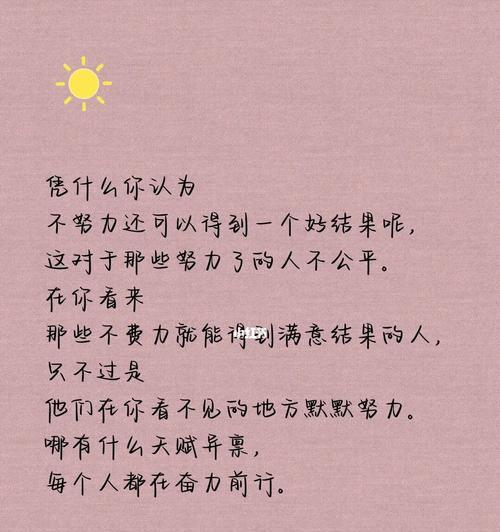 凭什么你认为
不努力还可以得到一个好结果呢，
这对于那些努力了的人不公平。
在你看来
那些不费力就能得到满意结果的人，
只不过是
他们在你看不见的地方默默努力。
哪有什么天赋异禀，
每个人都在奋力前行。